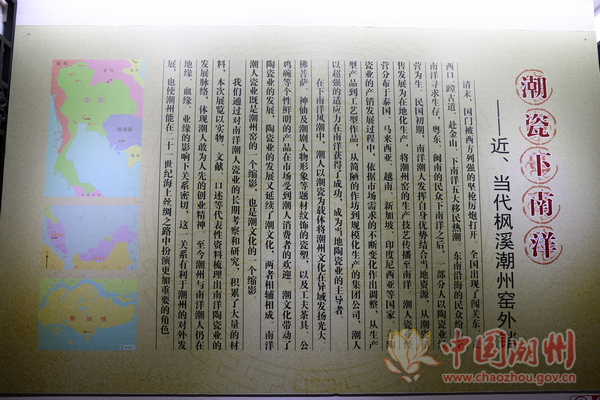 潮瓷下南洋
——近、当代枫溪潮州窑外销
清末，国门被西方列强的坚枪历炮打开，全国出现了闯关东、
西口、蹚古道、赴金山、下南洋五大移民热潮，东南沿海的民众纷
南洋寻求生存，粤东、闽南的民众下南洋之后，一部分人以陶瓷业
营为生。民国初期，南洋潮人发挥自身优势结合当地资源，从潮瓷
售发展为在地化生产，将潮州窑的生产技艺传播至南洋。潮人瓷业经
营分布于泰国、马来西亚、越南、新加坡、印度尼西亚等国家。
瓷业的产销发展过程中，依据市场需求的不断变化作出调整，从生产
型产品到工艺型作品，从简陋的作坊到规模化生产的集团公司，潮人
以超强的适应力在南洋获得了成功，成为当地陶瓷业的主导者。
在下南洋风潮中，潮人以潮瓷为载体将潮州文化在异域发扬光大，
佛菩萨、神仙及潮剧人物形象等题材纹饰的瓷塑，以及工夫茶具、公
鸡碗等个性鲜明的产品在市场受到潮人消费者的欢迎。潮文化带动了
陶瓷业的发展，陶瓷业的发展又延续了潮文化，两者相辅相成。南洋
潮人瓷业既是潮州窑的一个缩影，也是潮文化的一个缩影。
我们通过对南洋潮人瓷业的长期考察和研究，积累了大量的材
料。本次展览以实物、文献、口述等代表性资料梳理出南洋陶瓷业的
发展脉络，体现潮人敢为人先的创业精神。至今潮州与南洋潮人仍在
地缘、血缘、业缘的影响下关系密切，这一关系有利于潮州的对外发
展，也使潮州能在二十一世纪海上丝绸之路中扮演更加重要的角色。
泰国
新加坡
中国潮州
www.chaozhou.gov.cn